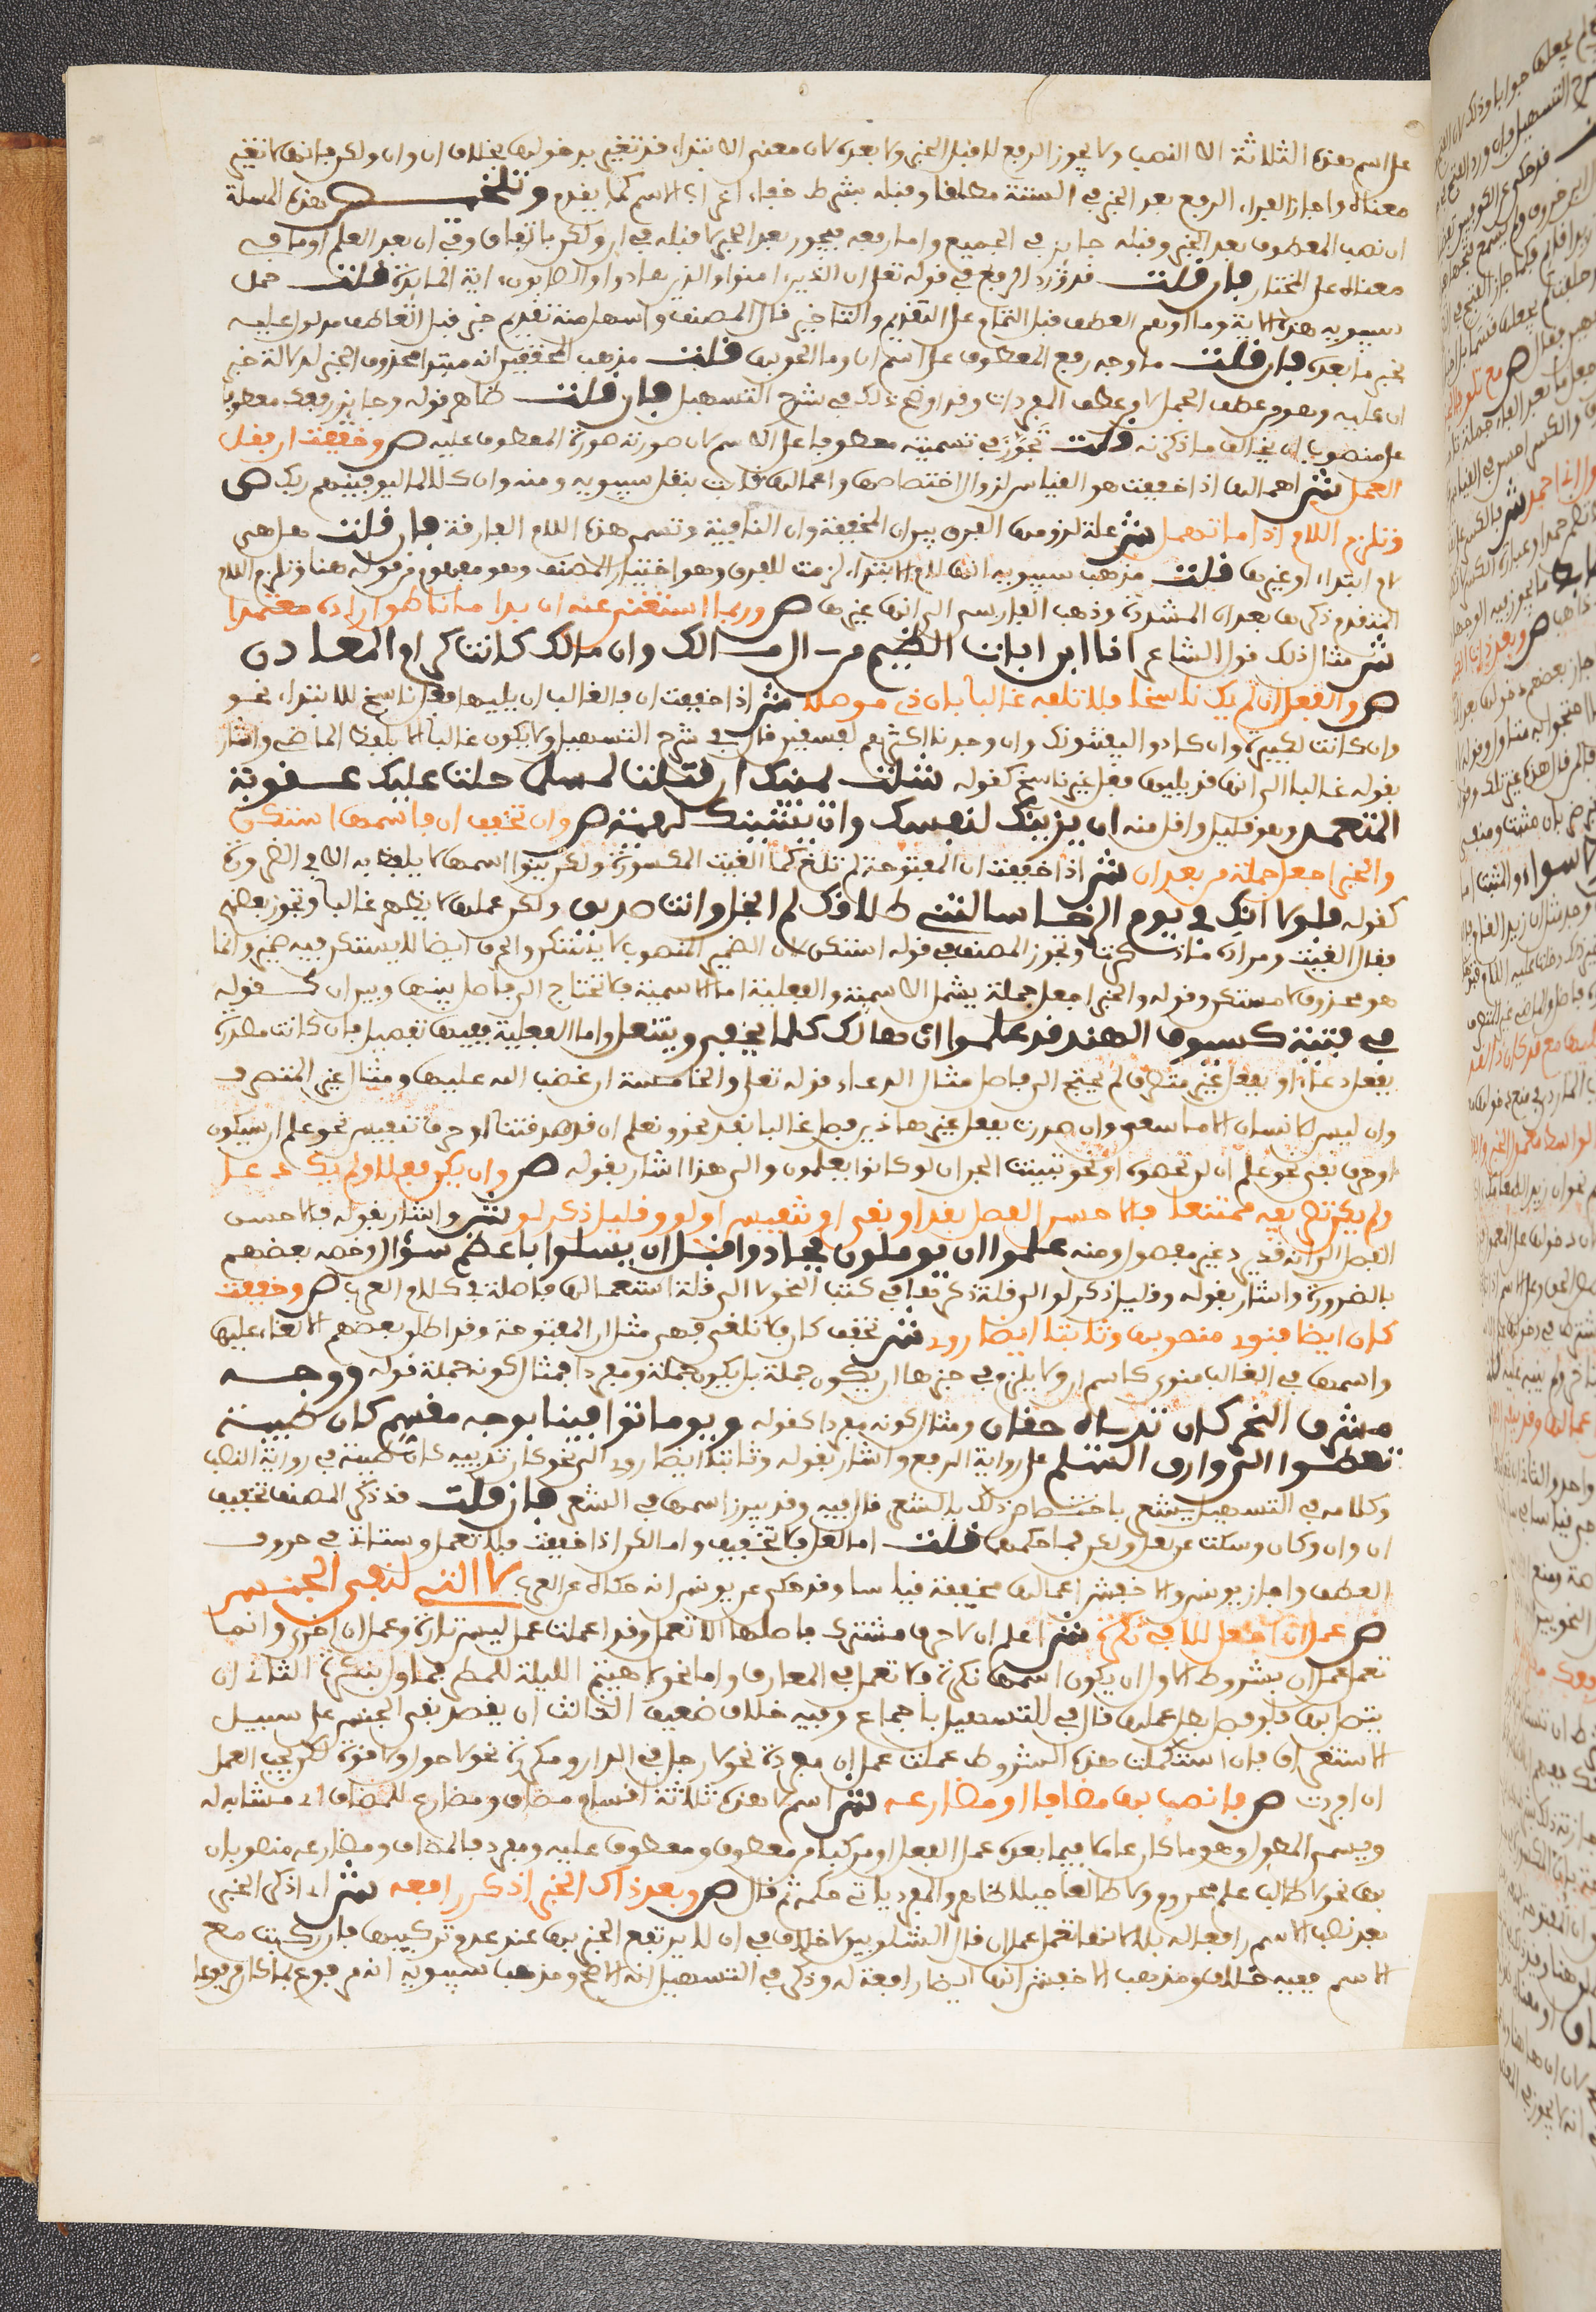 على اسم هذه الثلاثة الا النصب ولا يجوز الرفع لا قبل الخبر ولا بعده لان معنى الابتداء قد تغير بدخولها بخلاف ان وان ولكن فانها لا تغير
معناه واجاز الفراء الرفع بعد الخبر في الستة مطلقا وقبله بشرط خفاء اعراب الاسم كما يقدم وتلخيص هذه المسئلة
ان نصب المعطوف بعد الخبر وقبله جايز في الجميع واما رفعه فيجوز بعد الخبر لا قبله في ان ولكن باتفاق وفي ان بعد العلم او ما في
معناه على المختار فان قلت قد ورد الرفع في قوله تعلى ان الذين امنوا والذين هادوا والصابون اية المائدة قلت حمل
سيبويه هذه الاية وما اوهم العطف قبل التمام على التقديم والتاخير قال المصنف واسهل منه تقدير خبر قبل العاطف مدلول عليه
بخبر ما بعده فان قلت ما وجه رفع المعطوف على اسم ان وما الحق بها قلت مذهب المحققين انه مبتدا محذوف الخبر لدلالة خبر
ان عليه وهو من عطف الجمل لا من عطف المفردات وقد اوضح ذلك في شرح التسهيل فان قلت ظاهر قوله وجايز رفعك معطوفا
على منصوب ان يخالف ما ذكرته قلت تجوز في تسميته معطوفا على الاسم لان صورته صورة المعطوف عليه ص وخففت ان فقل
العمل ش اهمالها اذا خففت هو القياس لزوال اختصاصها واعمالها ثابت بنقل سيبويه ومنه وان كلا لما ليوفينهم ربك ص
وتلزم اللام اذا ما تهمل ش علة لزومها الفرق بين ان المخففة وان النافية وتسمى هذه اللام الفارقة فان قلت هل هي
لام ابتداء او غيرها قلت مذهب سيبويه انها لام الابتداء لزمت للفرق وهو اختيار المصنف وهو مفهوم من قوله هنا وتلزم اللام
المتقدم ذكرها بعد ان المشددة وذهب الفارسي الى انها غيرها ص وربما استغني عنها ان بدا ما ناطق اراده معتمدا
ش مثال ذلك قول الشاعر انا ابن اباة الضيم من ال مالك وان مالك كانت كرام المعادن
ص والفعل ان لم يك ناسخا فلا تلفيه غالبا بان ذي موصلا ش اذا خففت ان فالغالب ان يليها فعل ناسخ للابتداء نحو
وان كانت لكبيرة وان كادوا ليفتنونك وان وجدنا اكثرهم لفسقين قال في شرح التسهيل ولا يكون غالبا الا بلفظ الماضي واشار
بقوله غالبا الى انها قد يليها فعل غير ناسخ كقوله شلت يمينك ان قتلت لمسلما حلت عليك عقوبة
المتعمد وهو قليل واقل منه ان يزينك لنفسك وان يشينك لهيه ص وان تخفف ان فاسمها استكن
والخبر اجعل جملة من بعد ان ش اذا خففت ان المفتوحة لم تلغ كما الغيت المكسورة ولكن ينوا اسمها لا يلفظ به الا في الضرورة
كقوله فلو انك في يوم الرخاء سالتني طلاقك لم ابخل وانت صديق ولكن عملها لا يظهر غالبا وتجوز بعضهم
فقال الغيت ومراده ما ذكرنا وتجوز المصنف في قوله استكن لان الضمير المنصوب لا يستكن والحرف ايضا لا يستكن فيه ضمير وانما
هو محذوف لا مستكن وقوله والخبر اجعل جملة يشمل الاسمية والفعلية اما الاسمية فلا تحتاج الى فاصل بينها وبين ان كقوله
في فتية كسيوف الهند قد علموا ان هالك كل من يحفى وينتعل واما الفعلية ففيها تفصيل فان كانت مصدرة
بفعل دعاء او بفعل غير متصرف لم يحتج الى فاصل مثال الدعاء قوله تعلى والخامسة ان غضب الله عليها ومثال غير المتصرف
وان ليس للانسان الا ما سعى وان صدرت بفعل غير هاذين فصل غالبا بقد نحو ونعلم ان قد صدقتنا او حرف تنفيس نحو علم ان سيكون
او حرف نفي نحو علم ان لن تحصوه او نحو تبينت الجن ان لو كانوا يعلمون والى هذا اشار بقوله ص وان يكن فعلا ولم يكن دعا
ولم يكن تصريفه ممتنعا فالاحسن الفصل بقد او نفي او تنفيس او لو وقليل ذكر لو ش واشار بقوله فالاحسن
الفصل الى انه قد يرد غير مفصول ومنه علموا ان يوملون فجادوا قبل ان يسلوا باعظم سؤل وخصه بعضهم
بالضرورة واشار بقوله وقليل ذكر لو الى قلة ذكرها في كتب النحو لا الى قلة استعمالها فاصلة في كلام العرب ص وخففت
كان ايضا فنوي منصوبها وثابتا ايضا روي ش تخفف كان فلا تلغى فهي مثل ان المفتوحة وقد اطلق بعضهم الالغاء عليها
واسمها في الغالب منوي كاسم ان ولا يلزم في خبرها ان يكون جملة بل يكون جملة ومفردا فمثال كونه جملة قوله ووجه
مشرق النحر كان ثدياه حقان ومثال كونه مفردا كقوله ويوما توافينا بوجه مقسم كان ظبية
تعطوا الى وارق السلم على رواية الرفع واشار بقوله وثابتا ايضا روي الى نحو كان ثدييه كان ظبية في رواية النصب
وكلامه في التسهيل يشعر باختصاص ذلك بالشعر قال فيه وقد يبرز اسمها في الشعر فان قلت قد ذكر المصنف تخفيف
ان وان وكان وسكت عن لعل ولكن فما حكمهما قلت اما لعل فلا تخفف واما لكن اذا خففت فلا تعمل وستاتي في حروف
العطف واجاز يونس والاخفش اعمالها مخففة قياسا وقد حكي عن يونس انه حكاه عن العرب لا التي لنفي الجنس
ص عمل ان اجعل للا في نكره ش اعلم ان لا حرف مشترك فاصلها الا تعمل وقد اعملت عمل ليس تارة وعمل ان اخرى وانما
تعمل عمل ان بشروط الاول ان يكون اسمها نكرة فلا تعمل في المعارف واما نحو لا هيثم الليلة للمطي فماول بنكرة الثاني ان
يتصل بها فلو فصل بطل عملها قال في التسهيل باجماع وفيه خلاف ضعيف الثالث ان يقصد نفي الجنس على سبيل
الاستغراق فان استكملت هذه الشروط عملت عمل ان مفردة نحو لا رجل في الدار ومكررة نحو لا حول ولا قوة لكن يجب العمل
ان افردت ص فانصب بها مضافا او مضارعه ش اسم لا هذه ثلاثة اقسام مضاف ومضارع للمضاف اي مشابه له
ويسمى المطول وهو ما كان عاملا فيما بعده عمل الفعل او مركبا من معطوف ومعطوف عليه ومفرد فالمضاف ومضارعه منصوبان
بها نحو لا طالب علم محروم ولا طالعا جبلا ظاهر والمفرد ياتي حكمه ثم قال ص وبعد ذاك الخبر اذكر رافعه ش اي اذكر الخبر
بعد نصب الاسم رافعا له بلا لانها تعمل عمل ان قال الشلوبين لا خلاف في ان لا يرتفع الخبر بها عند عدم تركيبها فان ركبت مع
الاسم ففيه خلاف ومذهب الاخفش انها ايضا رافعة له وذكر في التسهيل انه الاصح ومذهب سيبويه انه مرفوع بما كان مرفوعا